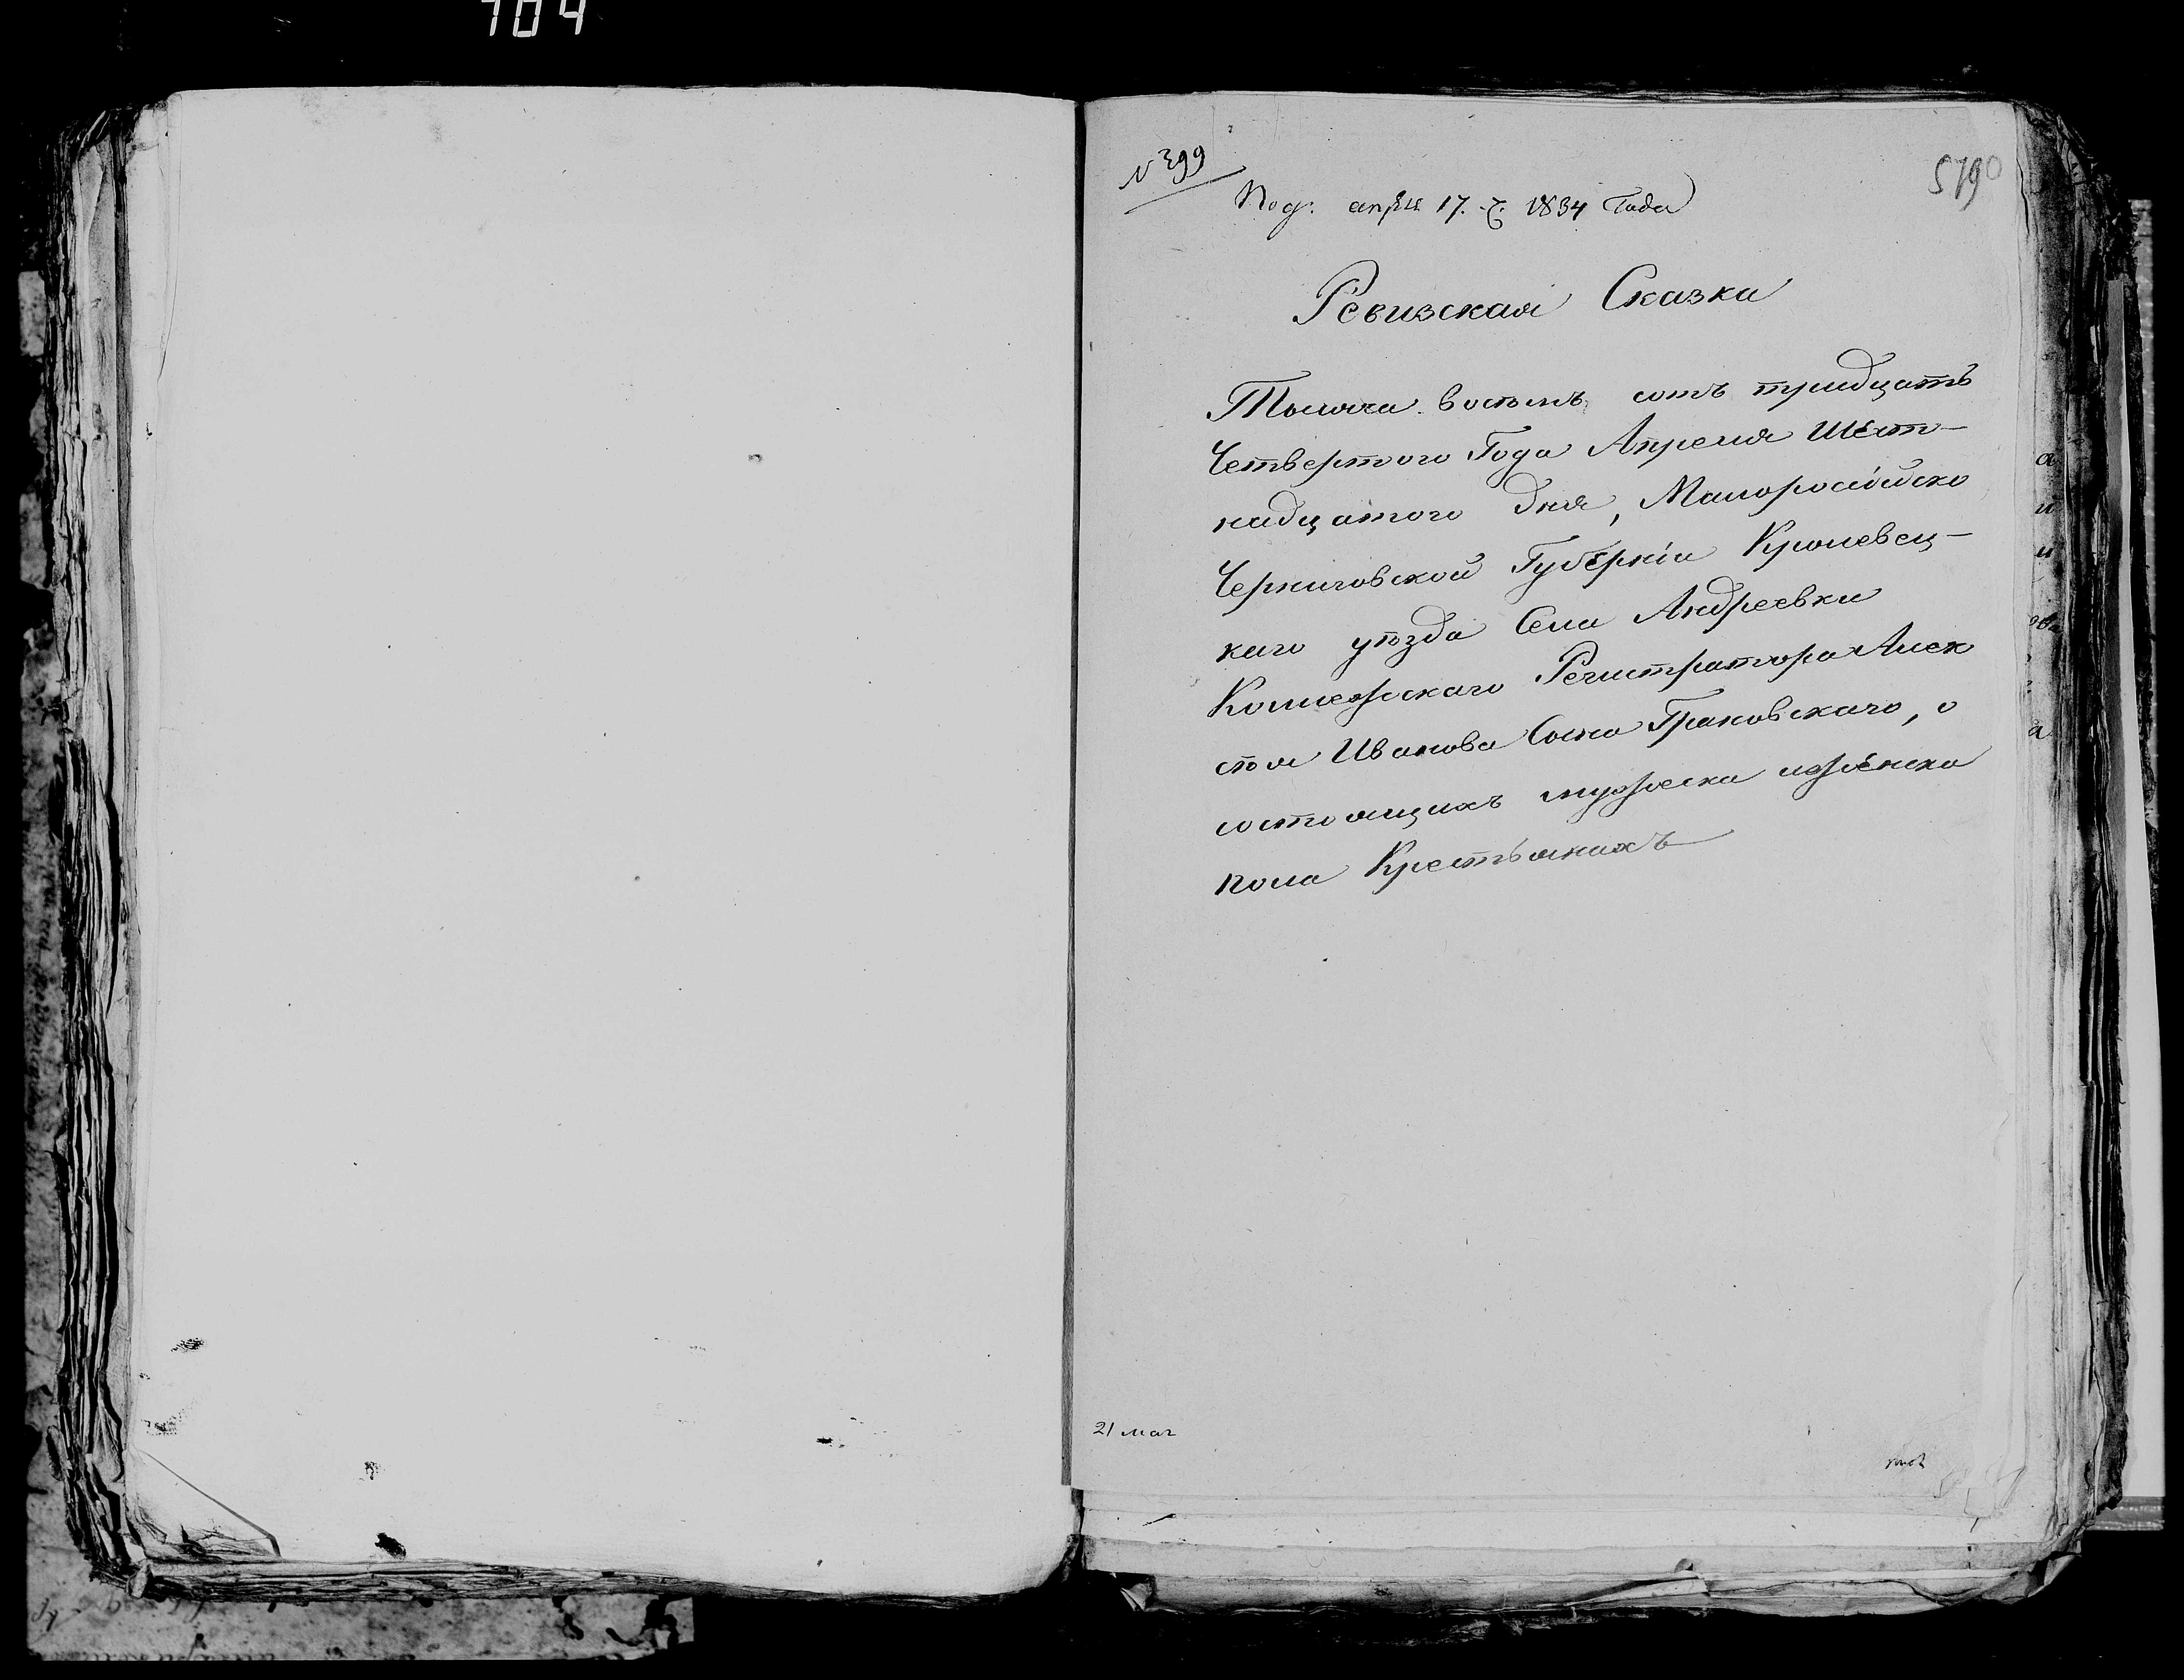 704
№ 399
5790
Под: апреля 17. ч. 1834 Года
Ревизская Сказка
Тысяча восемь сотъ тридцать
Четвертого Года Апреля Шест-
надцатого Дня, Малоросійско
Черниговской Губерніи Кролевец-
каго уѣзда Села Андреевки
Колежскаго Регистратора Алек
сѣя Иванова Сына Граковскаго, о
состоящихъ мужеска и женска
пола Крестьянахъ
21 мая